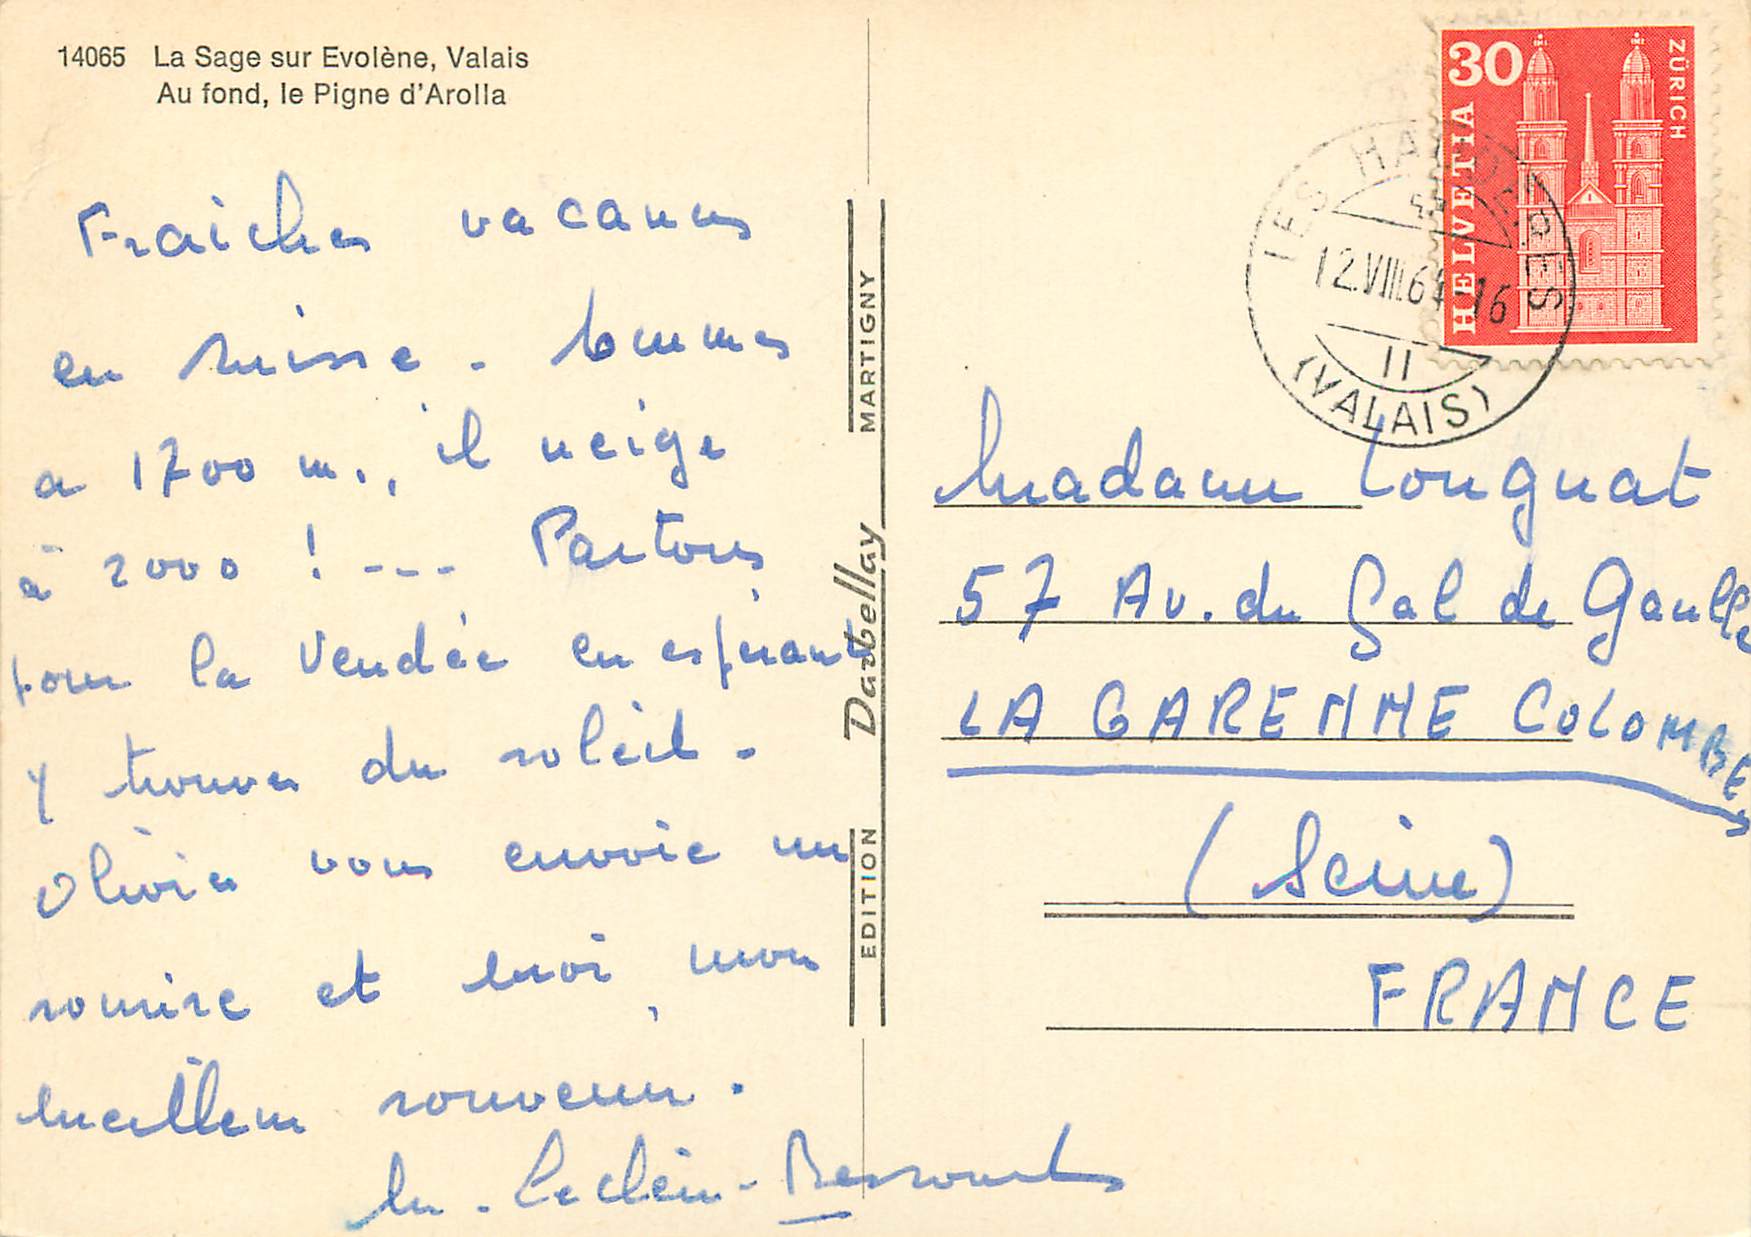 14065 La Sage sur Evolène, Valais
Au fond, le Pigne d'Arolla
Fraiches vacances
en Suisse - Sommes
a 1700 m., il neige
à 2000 ! ---- Partons
pour la Vendée en espérant
y trouver du soleil -
Olivier vous envoie un
sourire et moi, mon
meilleur souvenir.
EDITION Darbellay MARTIGNY
30
HELVETIA
ZÜRICH
LES HAUDÈRES
12.VIII.64-16
11
(VALAIS)
Madame Longuat
57 Av. du Gal de Gaulle
LA GARENNE COLOMBES
(Seine)
FRANCE